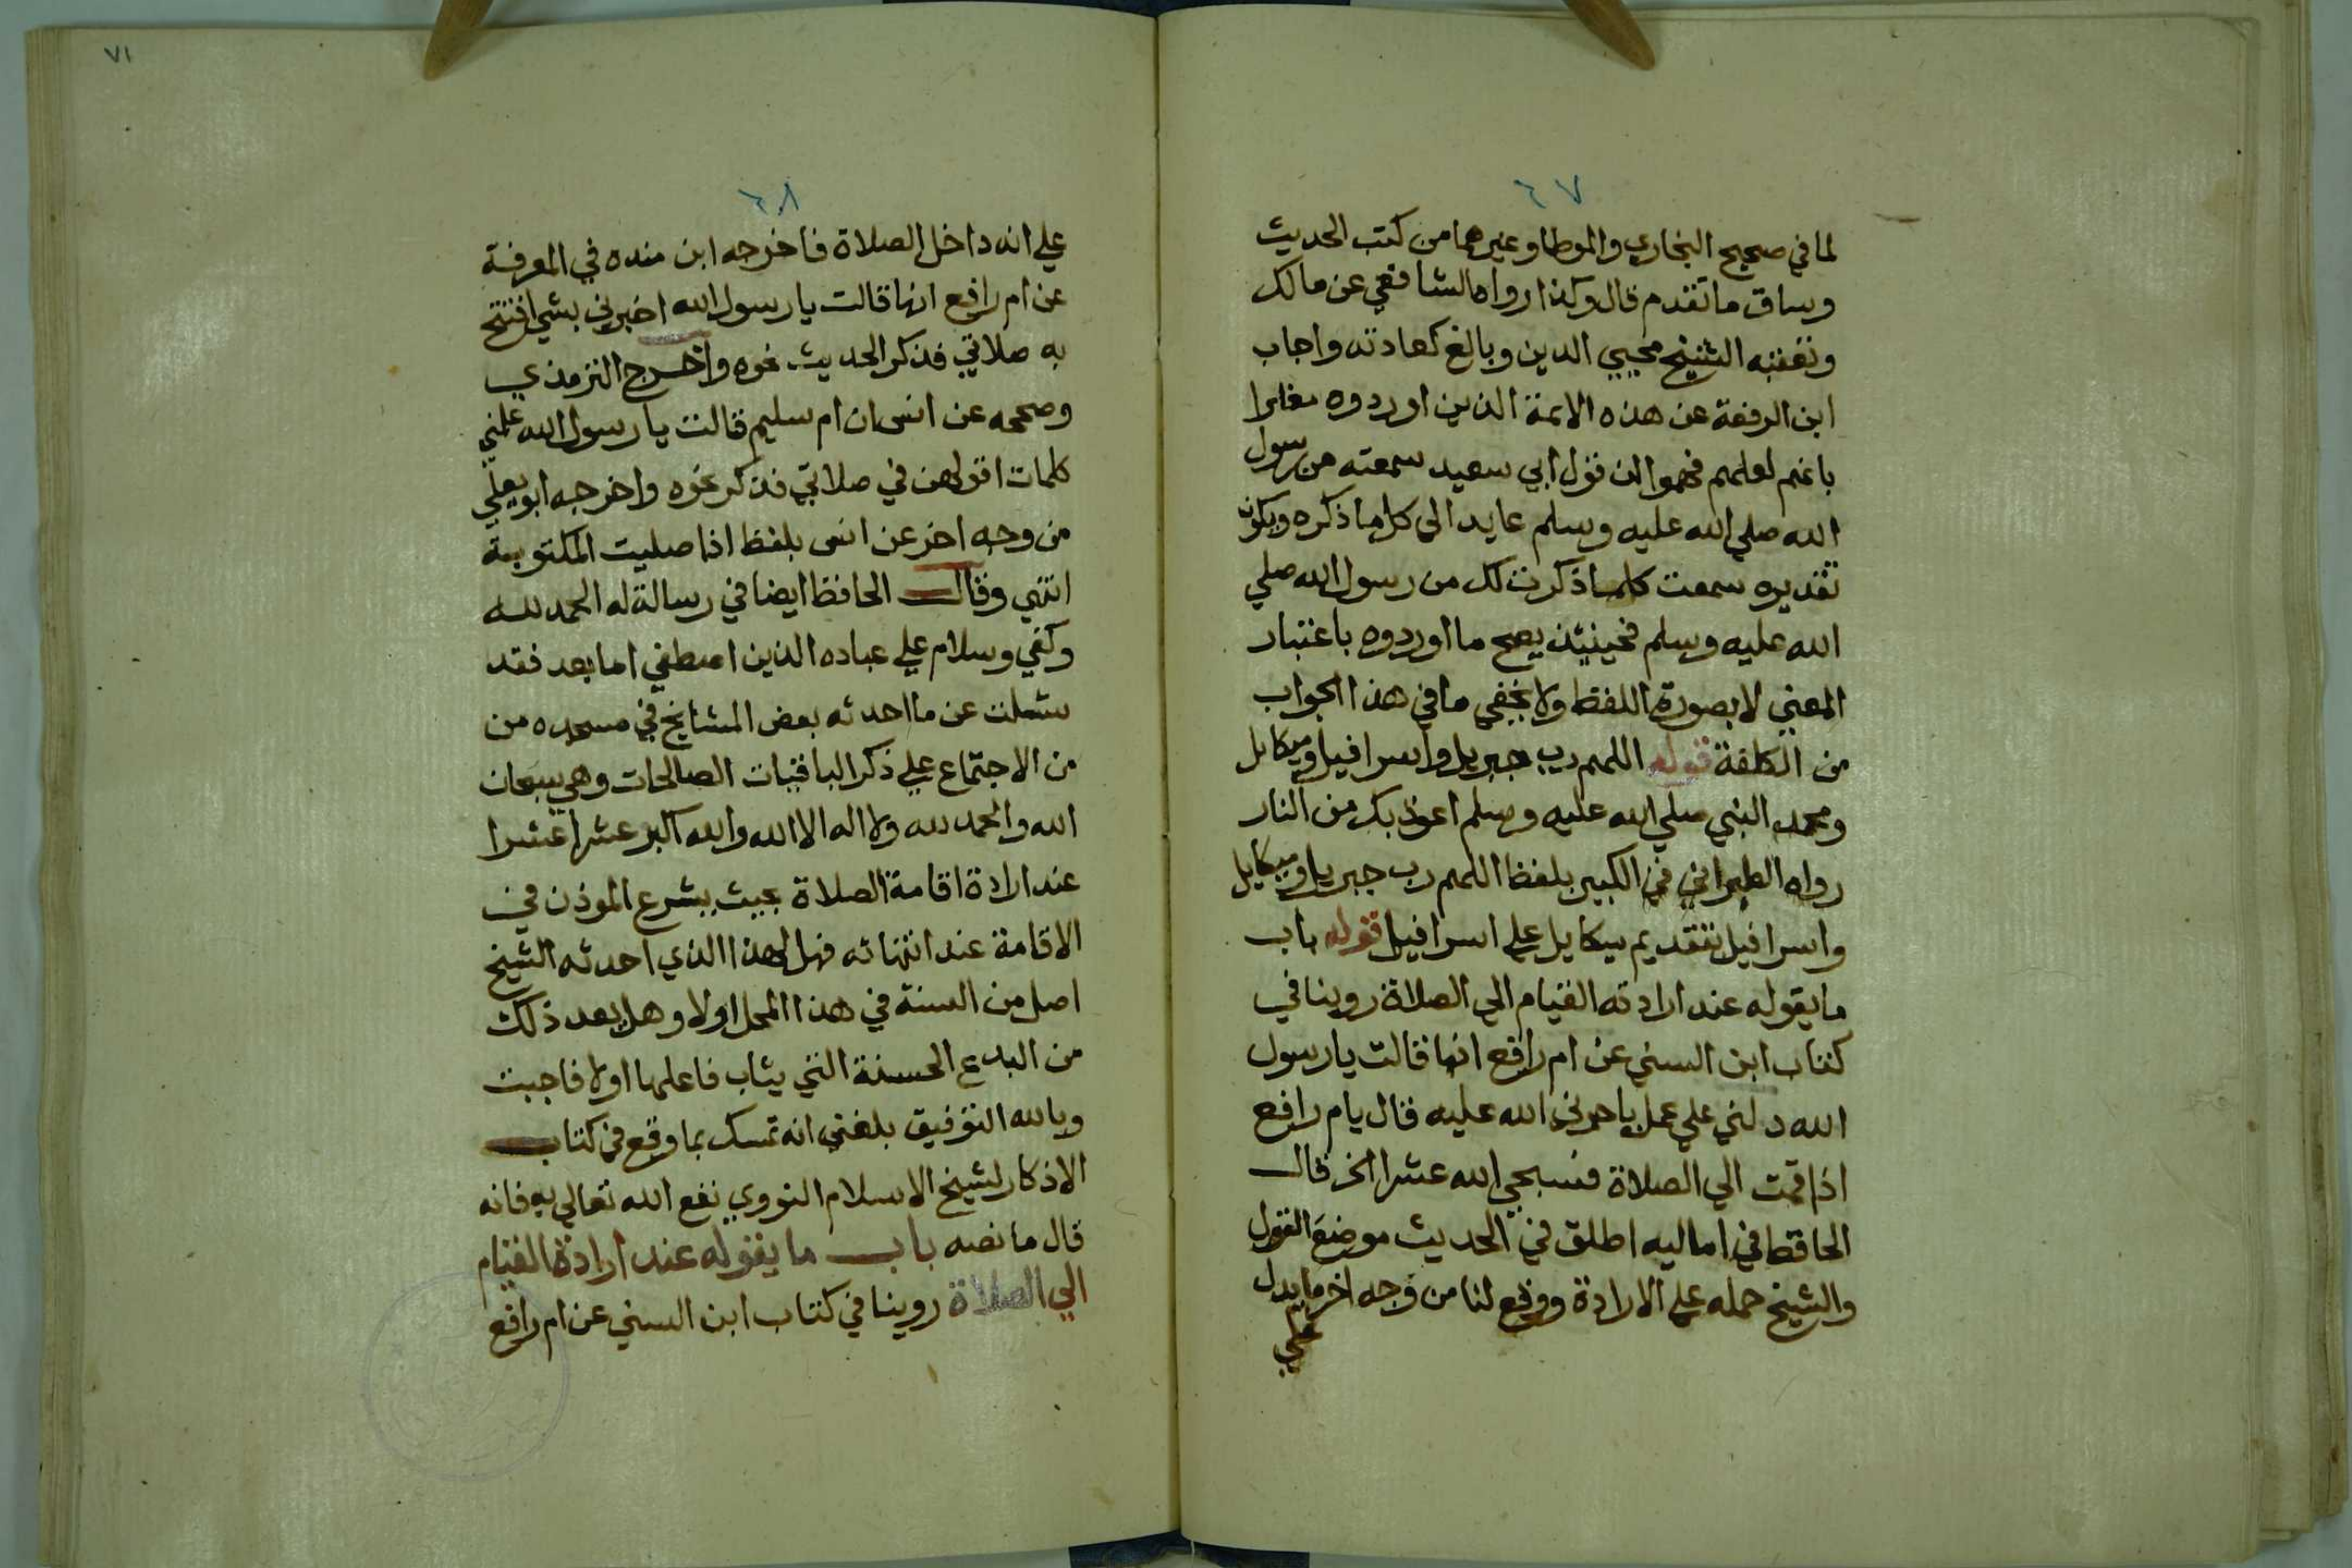 ٦٧
لما في صحيح البخاري والموطا وغيرهما من كتب الحديث
وساق ما تقدم قال وكذا رواه الشافعي عن مالك
وتعقبه الشيخ محيي الدين وبالغ كعادته واجاب
ابن الرفعة عن هذه الايمة الذين اوردوه مغايرا
بانهم لعلهم فهموا ان قول ابي سعيد سمعته من رسول
الله صلي الله عليه وسلم عايد الي كل ما ذكره ويكون
تقديره سمعت كلما ذكرت لك من رسول الله صلي
الله عليه وسلم فحينئذ يصح ما اوردوه باعتبار
المعني لا بصورة اللفظ ولا يخفي ما في هذا الجواب
من الكلفة قوله اللهم رب جبريل واسرافيل وميكايل
ومحمد النبي صلي الله عليه وسلم اعوذ بك من النار
رواه الطبراني في الكبير بلفظ اللهم رب جبريل وميكايل
واسرافيل بتقديم ميكايل علي اسرافيل قوله باب
ما يقوله عند ارادته القيام الي الصلاة روينا في
كتاب ابن السني عن ام رافع انها قالت يا رسول
الله دلني علي عمل ياجرني الله عليه قال يام رافع
اذا قمت الي الصلاة فسبحي الله عشرا الخ قال
الحافظ في اماليه اطلق في الحديث موضع القول
والشيخ حمله علي الارادة ووقع لنا من وجه اخر ما يدل
علي
٧١
٦٨
علي انه داخل الصلاة فاخرجه ابن منده في المعرفة
عن ام رافع انها قالت يا رسول الله اخبرني بشي افتتح
به صلاتي فذكر الحديث نحوه واخرج الترمذي
وصححه عن انس ان ام سليم قالت يا رسول الله علمني
كلمات اقولهن في صلاتي فذكر نحوه واخرجه ابو يعلي
من وجه اخر عن انس بلفظ اذا صليت المكتوبة
انتهي وقال الحافظ ايضا في رسالة له الحمد لله
وكفي وسلام علي عباده الذين اصطفي اما بعد فقد
سئلت عن ما احدثه بعض المشايخ في مسجده من
من الاجتماع علي ذكر الباقيات الصالحات وهي سبحان
الله والحمد لله ولا اله الا الله والله اكبر عشرا عشرا
عند ارادة اقامة الصلاة بحيث يشرع الموذن في
الاقامة عند انتهائه فهل لهذا الذي احدثه الشيخ
اصل من السنة في هذا المحل اولا وهل يعد ذلك
من البدع الحسنة التي يثاب فاعلها اولا فاجبت
وبالله التوفيق بلغني انه تمسك بما وقع في كتاب
الاذكار لشيخ الاسلام النووي نفع الله تعالي به فانه
قال ما نصه باب ما يقوله عند ارادة القيام
الي الصلاة روينا في كتاب ابن السني عن ام رافع